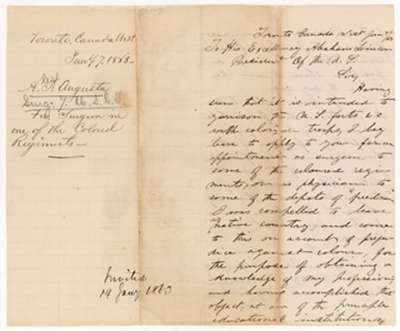 Toronto, Canada West
Jany 7, 1863.
A. T. Augusta
For Surgeon in
one of the Colored
Regiments
Invited
14 Jany 1863
Toronto Canada West Jan 7/63
To His Excellency Abraham Lincoln
President Of the U. S.
Sir,
Having
seen that it is intended to
garrison the U. S. forts &c
with colored troops, I beg
leave to apply to you for an
appointment as surgeon to
some of the coloured regi-
ments, or as physician to
some of the depots of "freedmen"
I was compelled to leave
native country, and come
to this on account of preju-
dice against colour, for
the purpose of obtaining a
knowledge of my profession;
and having accomplished that
object, at one of the principle
educational institutions